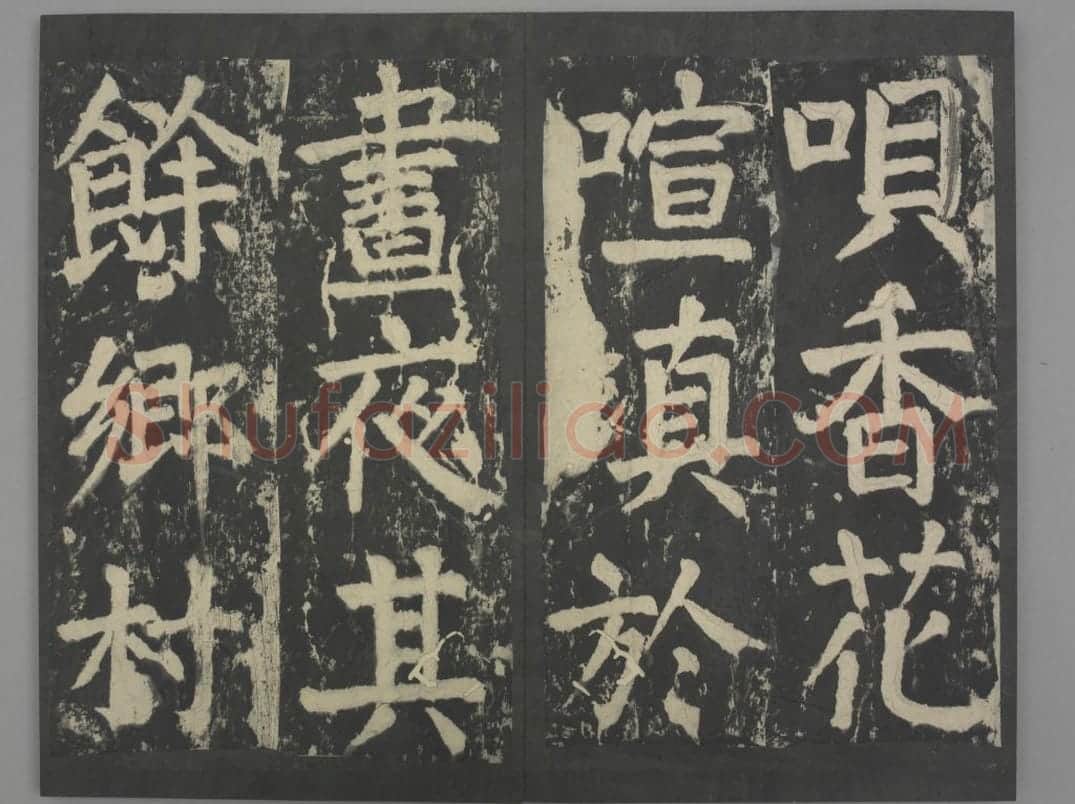 唄香花
喧真於
晝夜其
餘鄉村
Shufaziliao.COM